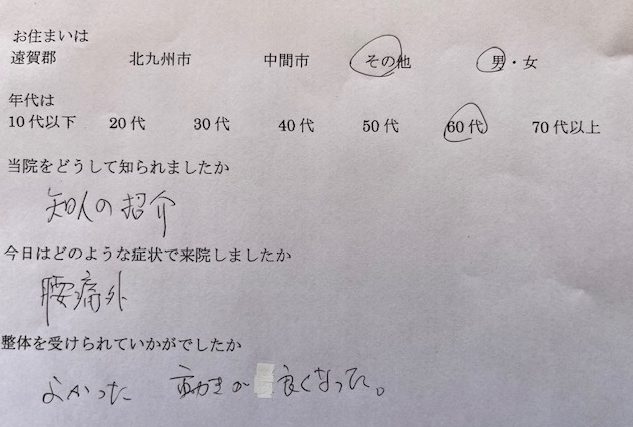 お住まいは
遠賀郡 北九州市 中間市 その他 男・女
年代は
10代以下 20代 30代 40代 50代 60代 70代以上
当院をどうして知られましたか
知人の紹介
今日はどのような症状で来院しましたか
腰痛外
整体を受けられていかがでしたか
よかった 動きが 良くなった。